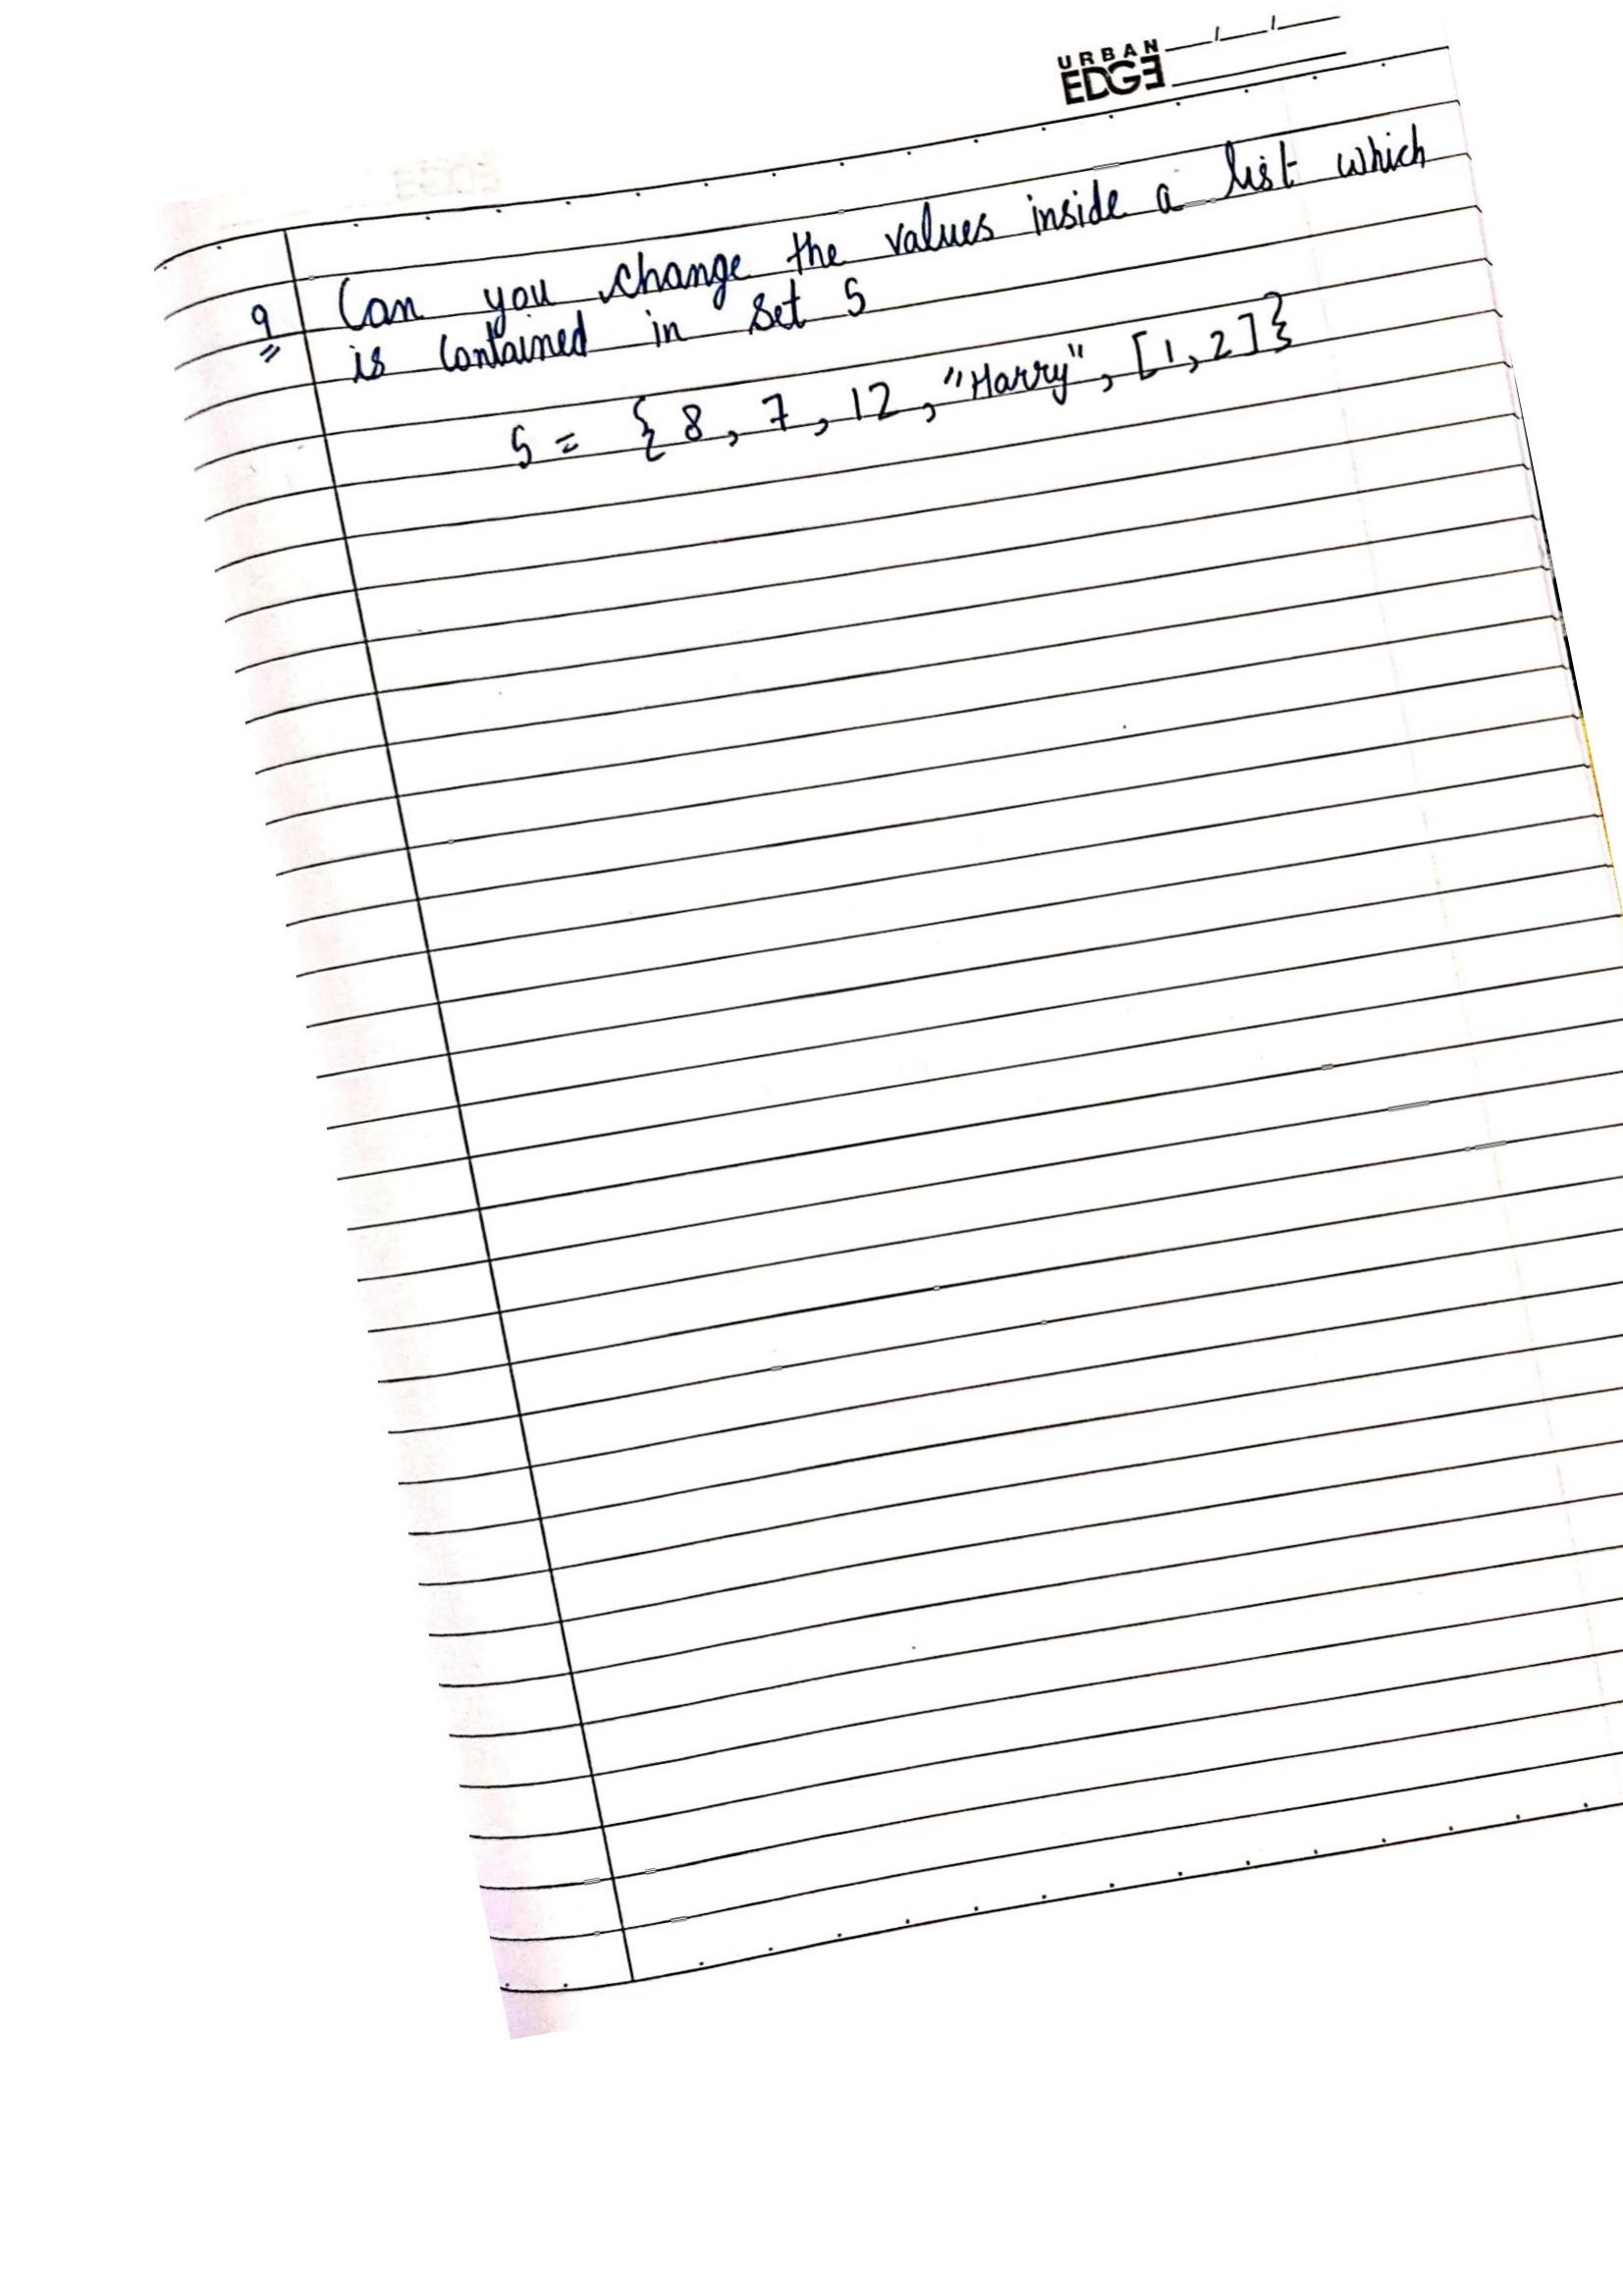 URBAN
EDGE
9 Can you change the values inside a list which
is contained in set S
S = {8, 7, 12, "Harry", [1, 2]}